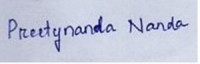 Preetynanda Nanda